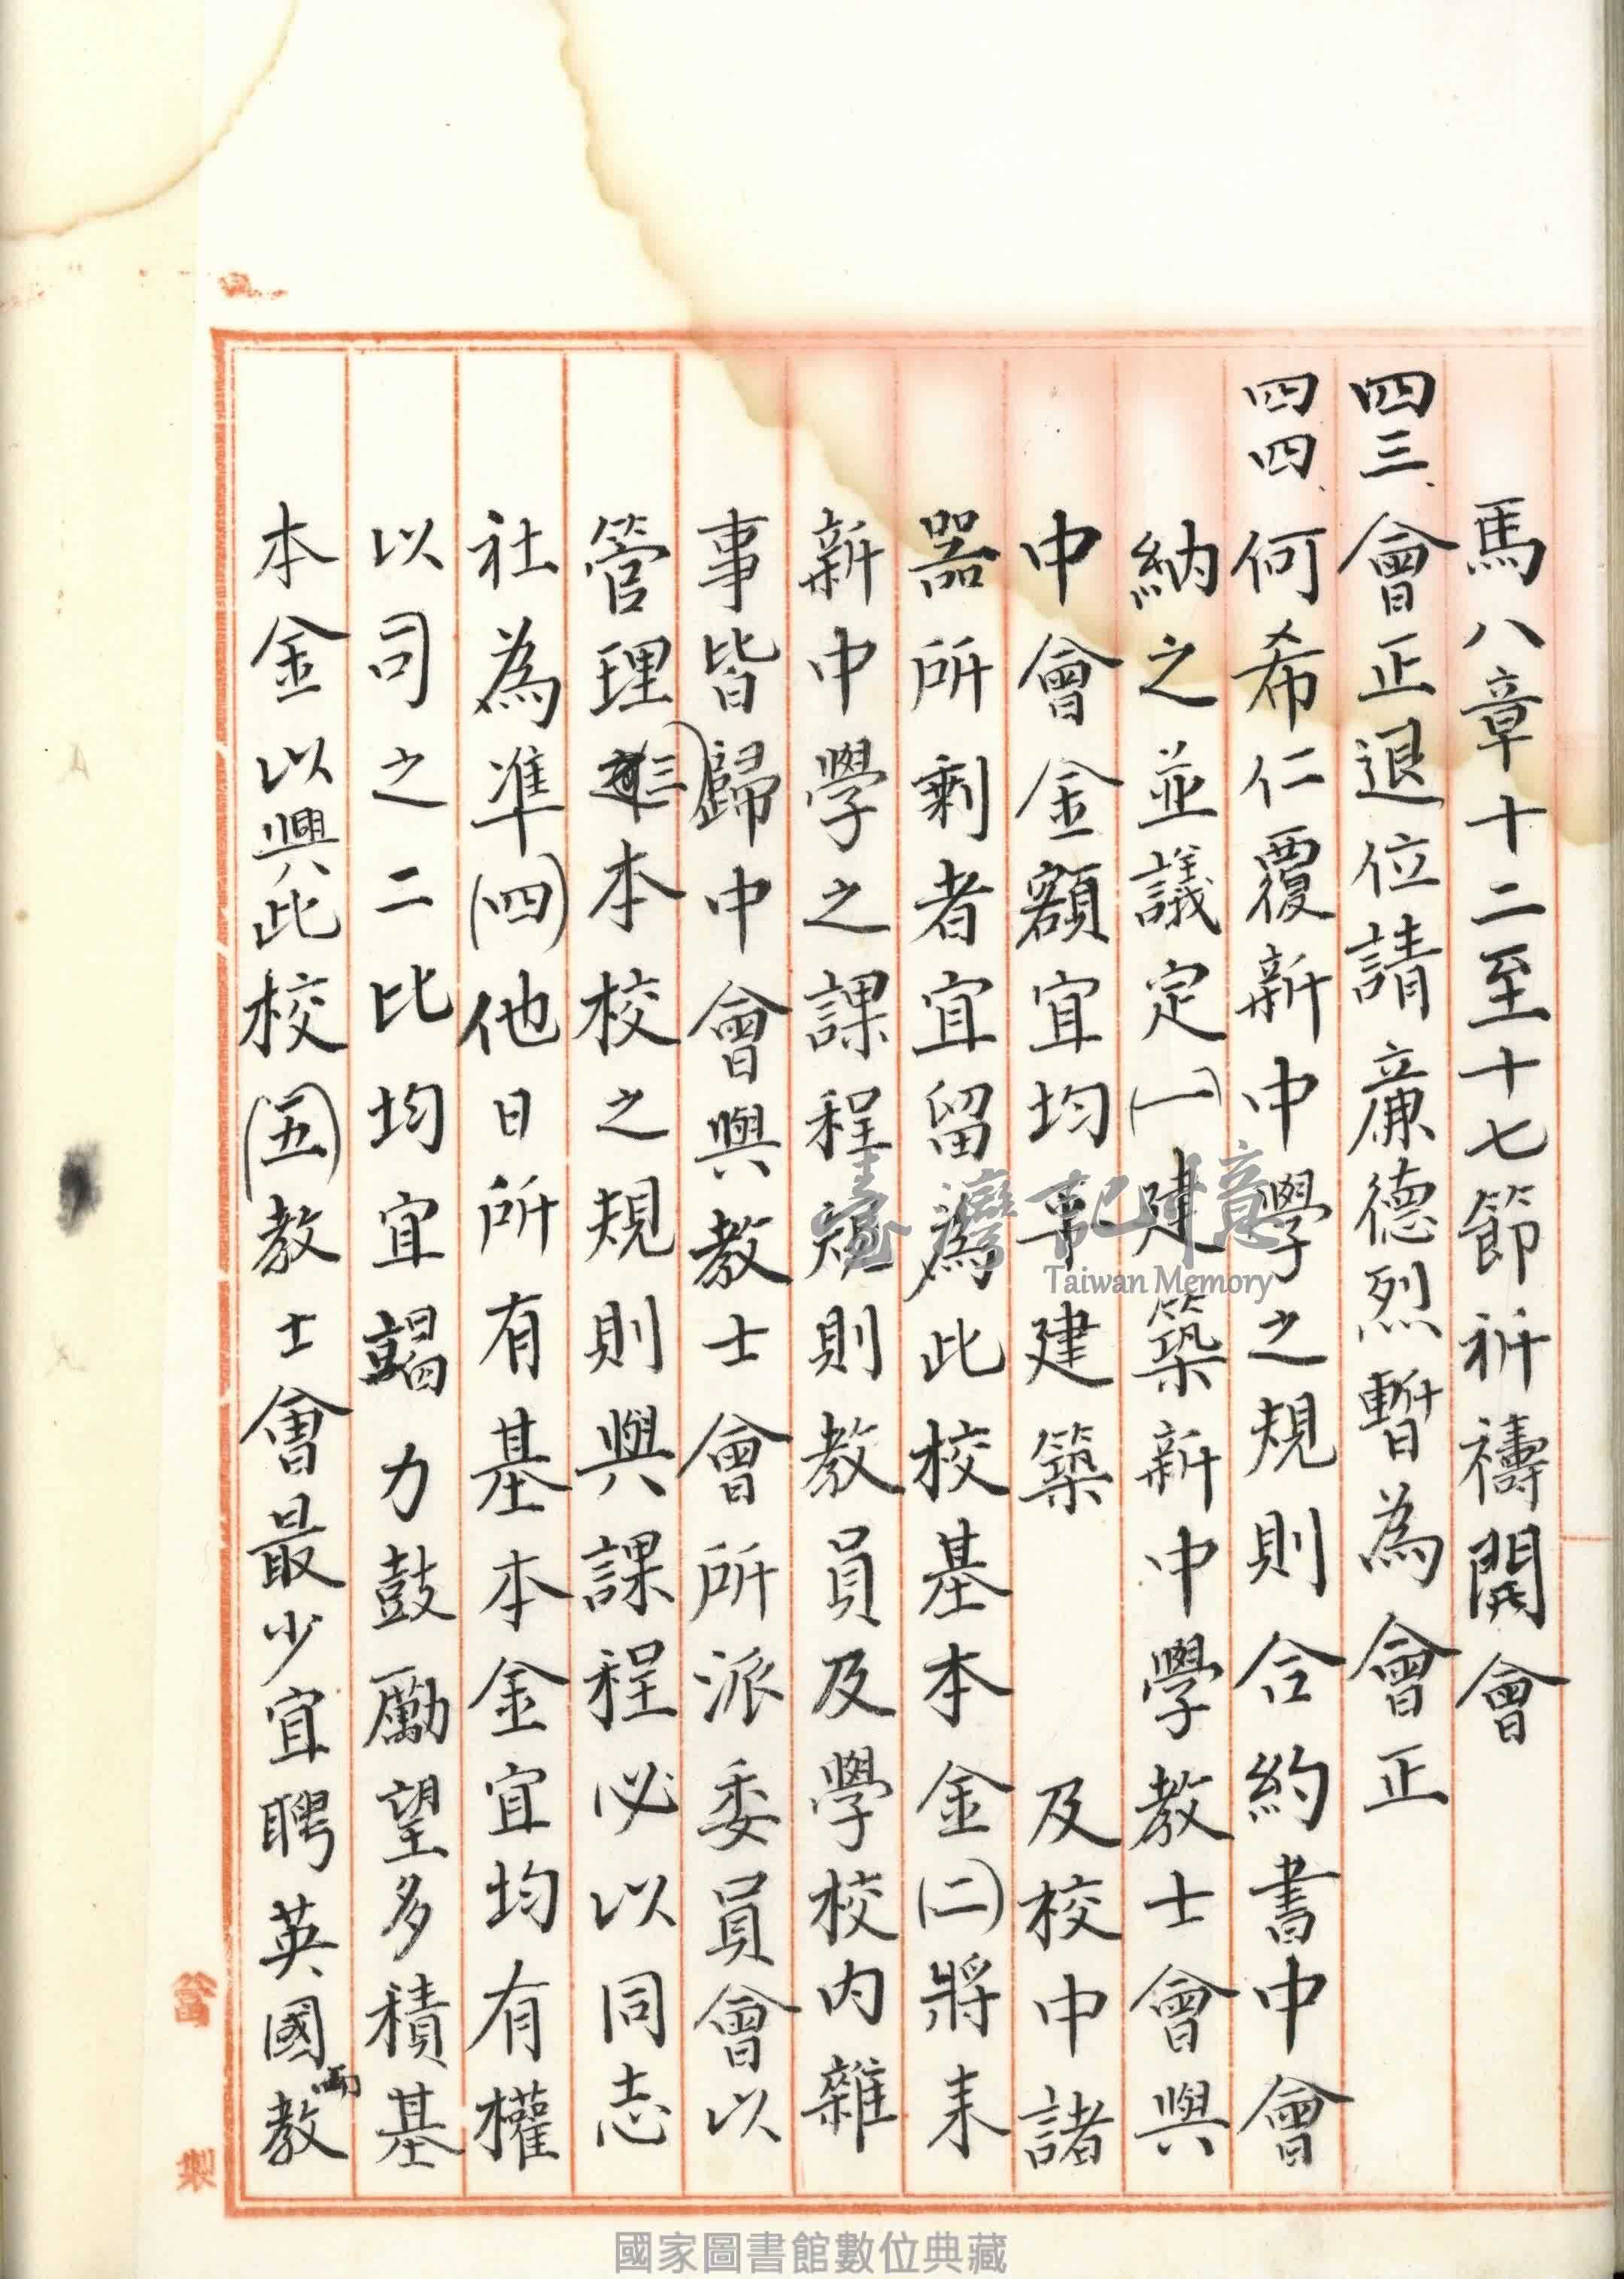 馬八章十二至十七節祈禱開會
四三、會正退位請廉德烈暫為會正
四四、何希仁覆新中學之規則合約書中會
納之並議定(一)建築新中學教士會與
中會金額宜均事建築　　及校中諸
器所剩者宜留為此校基本金(二)將來
新中學之課程規則教員及學校內雜
事皆歸中會與教士會所派委員會以
管理(三)本校之規則與課程必以同志
社為準(四)他日所有基本金宜均有權
以司之二比均宜竭力鼓勵望多積基
本金以興此校(五)教士會最少宜聘英國兩教
臺灣記憶
Taiwan Memory
製
國家圖書館數位典藏